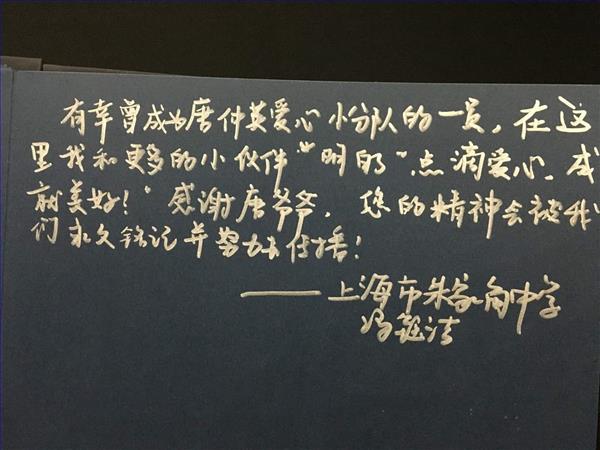 有幸曾成为唐仲英爱心小分队的一员，在这
里我和更多的小伙伴"明的"点滴爱心，成
就美好！"感谢唐爷爷，您的精神会被我
们永久铭记并努力去传播！
——上海市朱家角中学